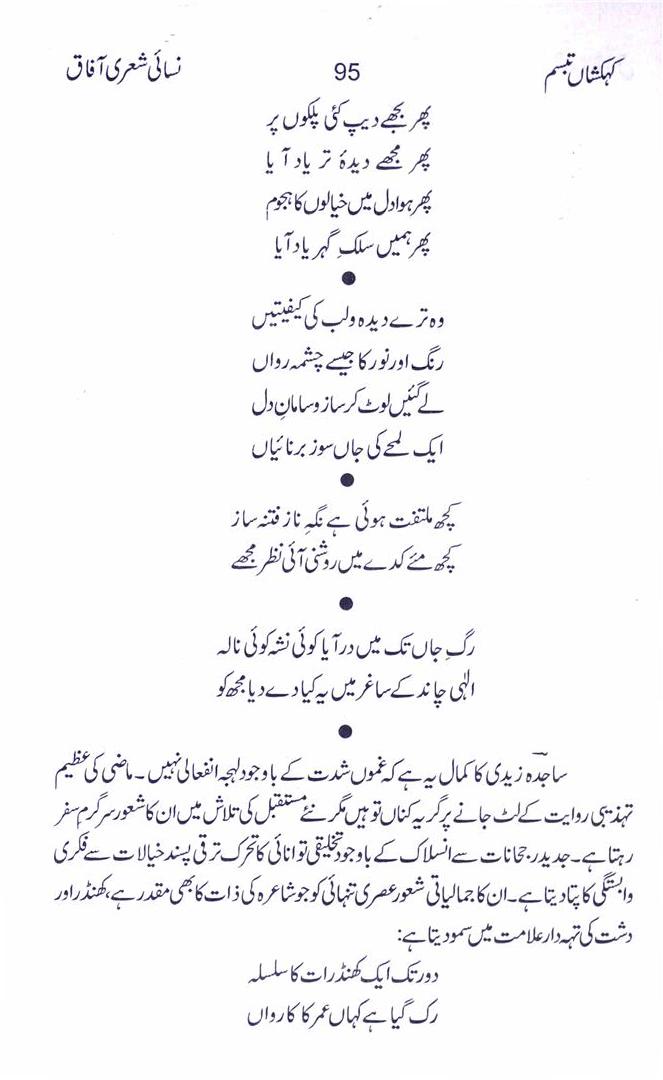 کہکشاں تبسم 95 نسائی شعری آفاق
پھر بجھے دیپ کئی پلکوں پر
پھر مجھے دیدۂ تر یاد آیا
پھر ہوا دل میں خیالوں کا ہجوم
پھر ہمیں سلکِ گہر یاد آیا
●
وہ ترے دیدہ و لب کی کیفیتیں
رنگ اور نور کا جیسے چشمہ رواں
لے گئیں لوٹ کر ساز و سامانِ دل
ایک لمحے کی جاں سوز برنائیاں
●
کچھ ملتفت ہوئی ہے نگہِ ناز فتنہ ساز
کچھ مئے کدے میں روشنی آئی نظر مجھے
●
رگِ جاں تک میں در آیا کوئی نشہ کوئی نالہ
الٰہی چاند کے ساغر میں یہ کیا دے دیا مجھ کو
●
ساجدہؔ زیدی کا کمال یہ ہے کہ غموں شدت کے باوجود لہجہ انفعالی نہیں۔ ماضی کی عظیم
تہذیبی روایت کے لٹ جانے پر گریہ کناں تو ہیں مگر نئے مستقبل کی تلاش میں ان کا شعور سرگرمِ سفر
رہتا ہے۔ جدید رجحانات سے انسلاک کے باوجود تخلیقی توانائی کا تحرک ترقی پسند خیالات سے فکری
وابستگی کا پتا دیتا ہے۔ ان کا جمالیاتی شعور عصری تنہائی کو جو شاعرہ کی ذات کا بھی مقدر ہے، کھنڈر اور
دشت کی تہہ دار علامت میں سمو دیتا ہے:
دور تک ایک کھنڈرات کا سلسلہ
رک گیا ہے کہاں عمر کا کارواں